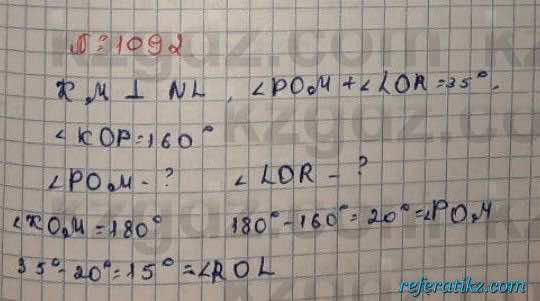 № 1092
KM ⊥ NL, ∠POM + ∠LOR = 35°.
∠KOP = 160°
∠POM - ? ∠LOR - ?
∠KOM = 180° 180° - 160° = 20° = ∠POM
35° - 20° = 15° = ∠ROL
referatikz.com